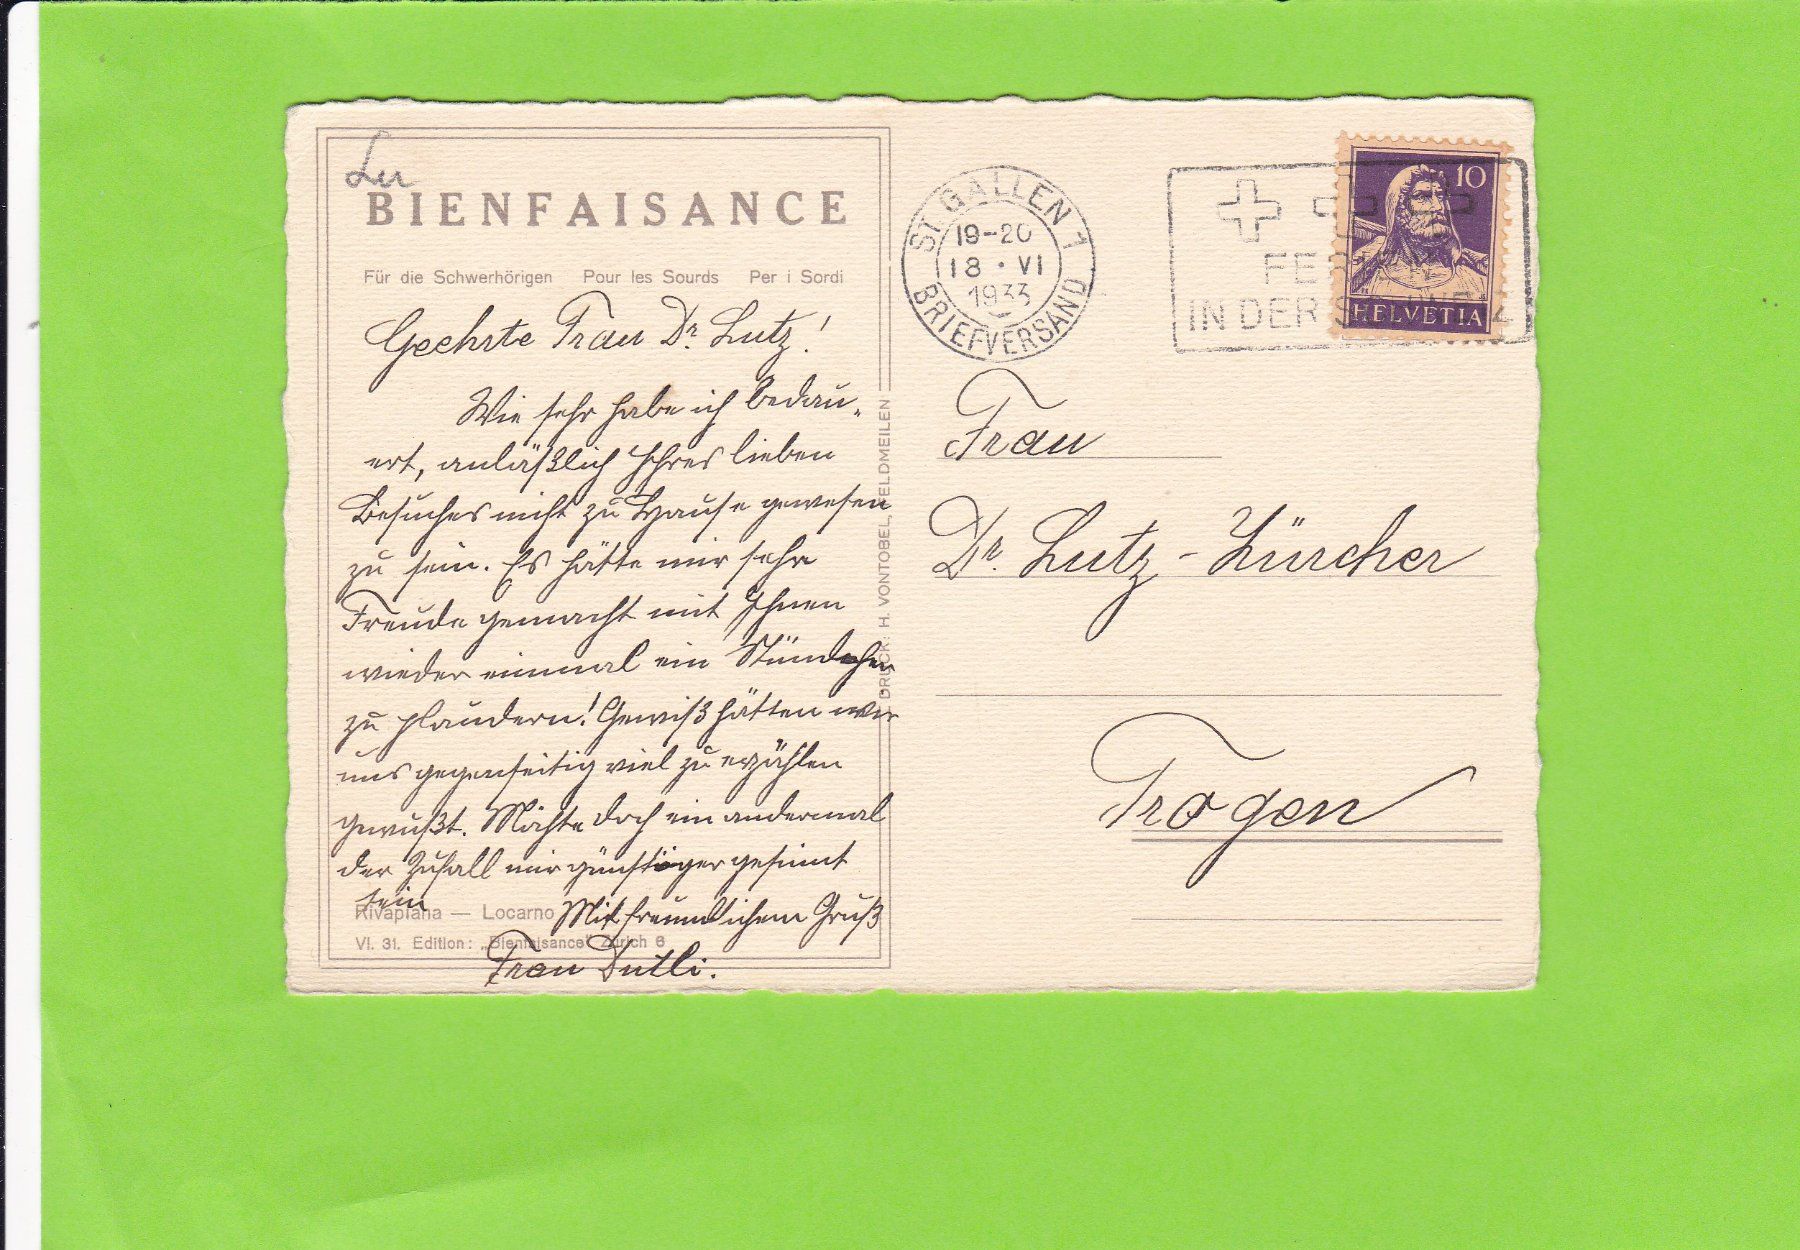 BIENFAISANCE
Für die Schwerhörigen Pour les Sourds Per i Sordi
Geehrte Frau Dr. Lutz!
Wie sehr habe ich bedau-
ert, anläßlich Ihres lieben
Besuches nicht zu Hause gewesen
zu sein. Es hätte mir sehr
Freude gemacht mit Ihnen
wieder einmal ein Stündchen
zu plaudern! Gewiß hätten wir
uns gegenseitig viel zu erzählen
gewußt. Möchte doch ein andermal
der Zufall mir günstiger gesinnt
sein
Mit freundlichem Gruß
Frau Dutli.
Rivapiana — Locarno
VI. 31. Edition: „Bienfaisance" Zürich 6
DRUCK: H. VONTOBEL, FELDMEILEN
ST. GALLEN 1
19-20
18 · VI
1933
BRIEFVERSAND
FE
IN DER
10
HELVETIA
Frau
Dr. Lutz-Zürcher
Trogen